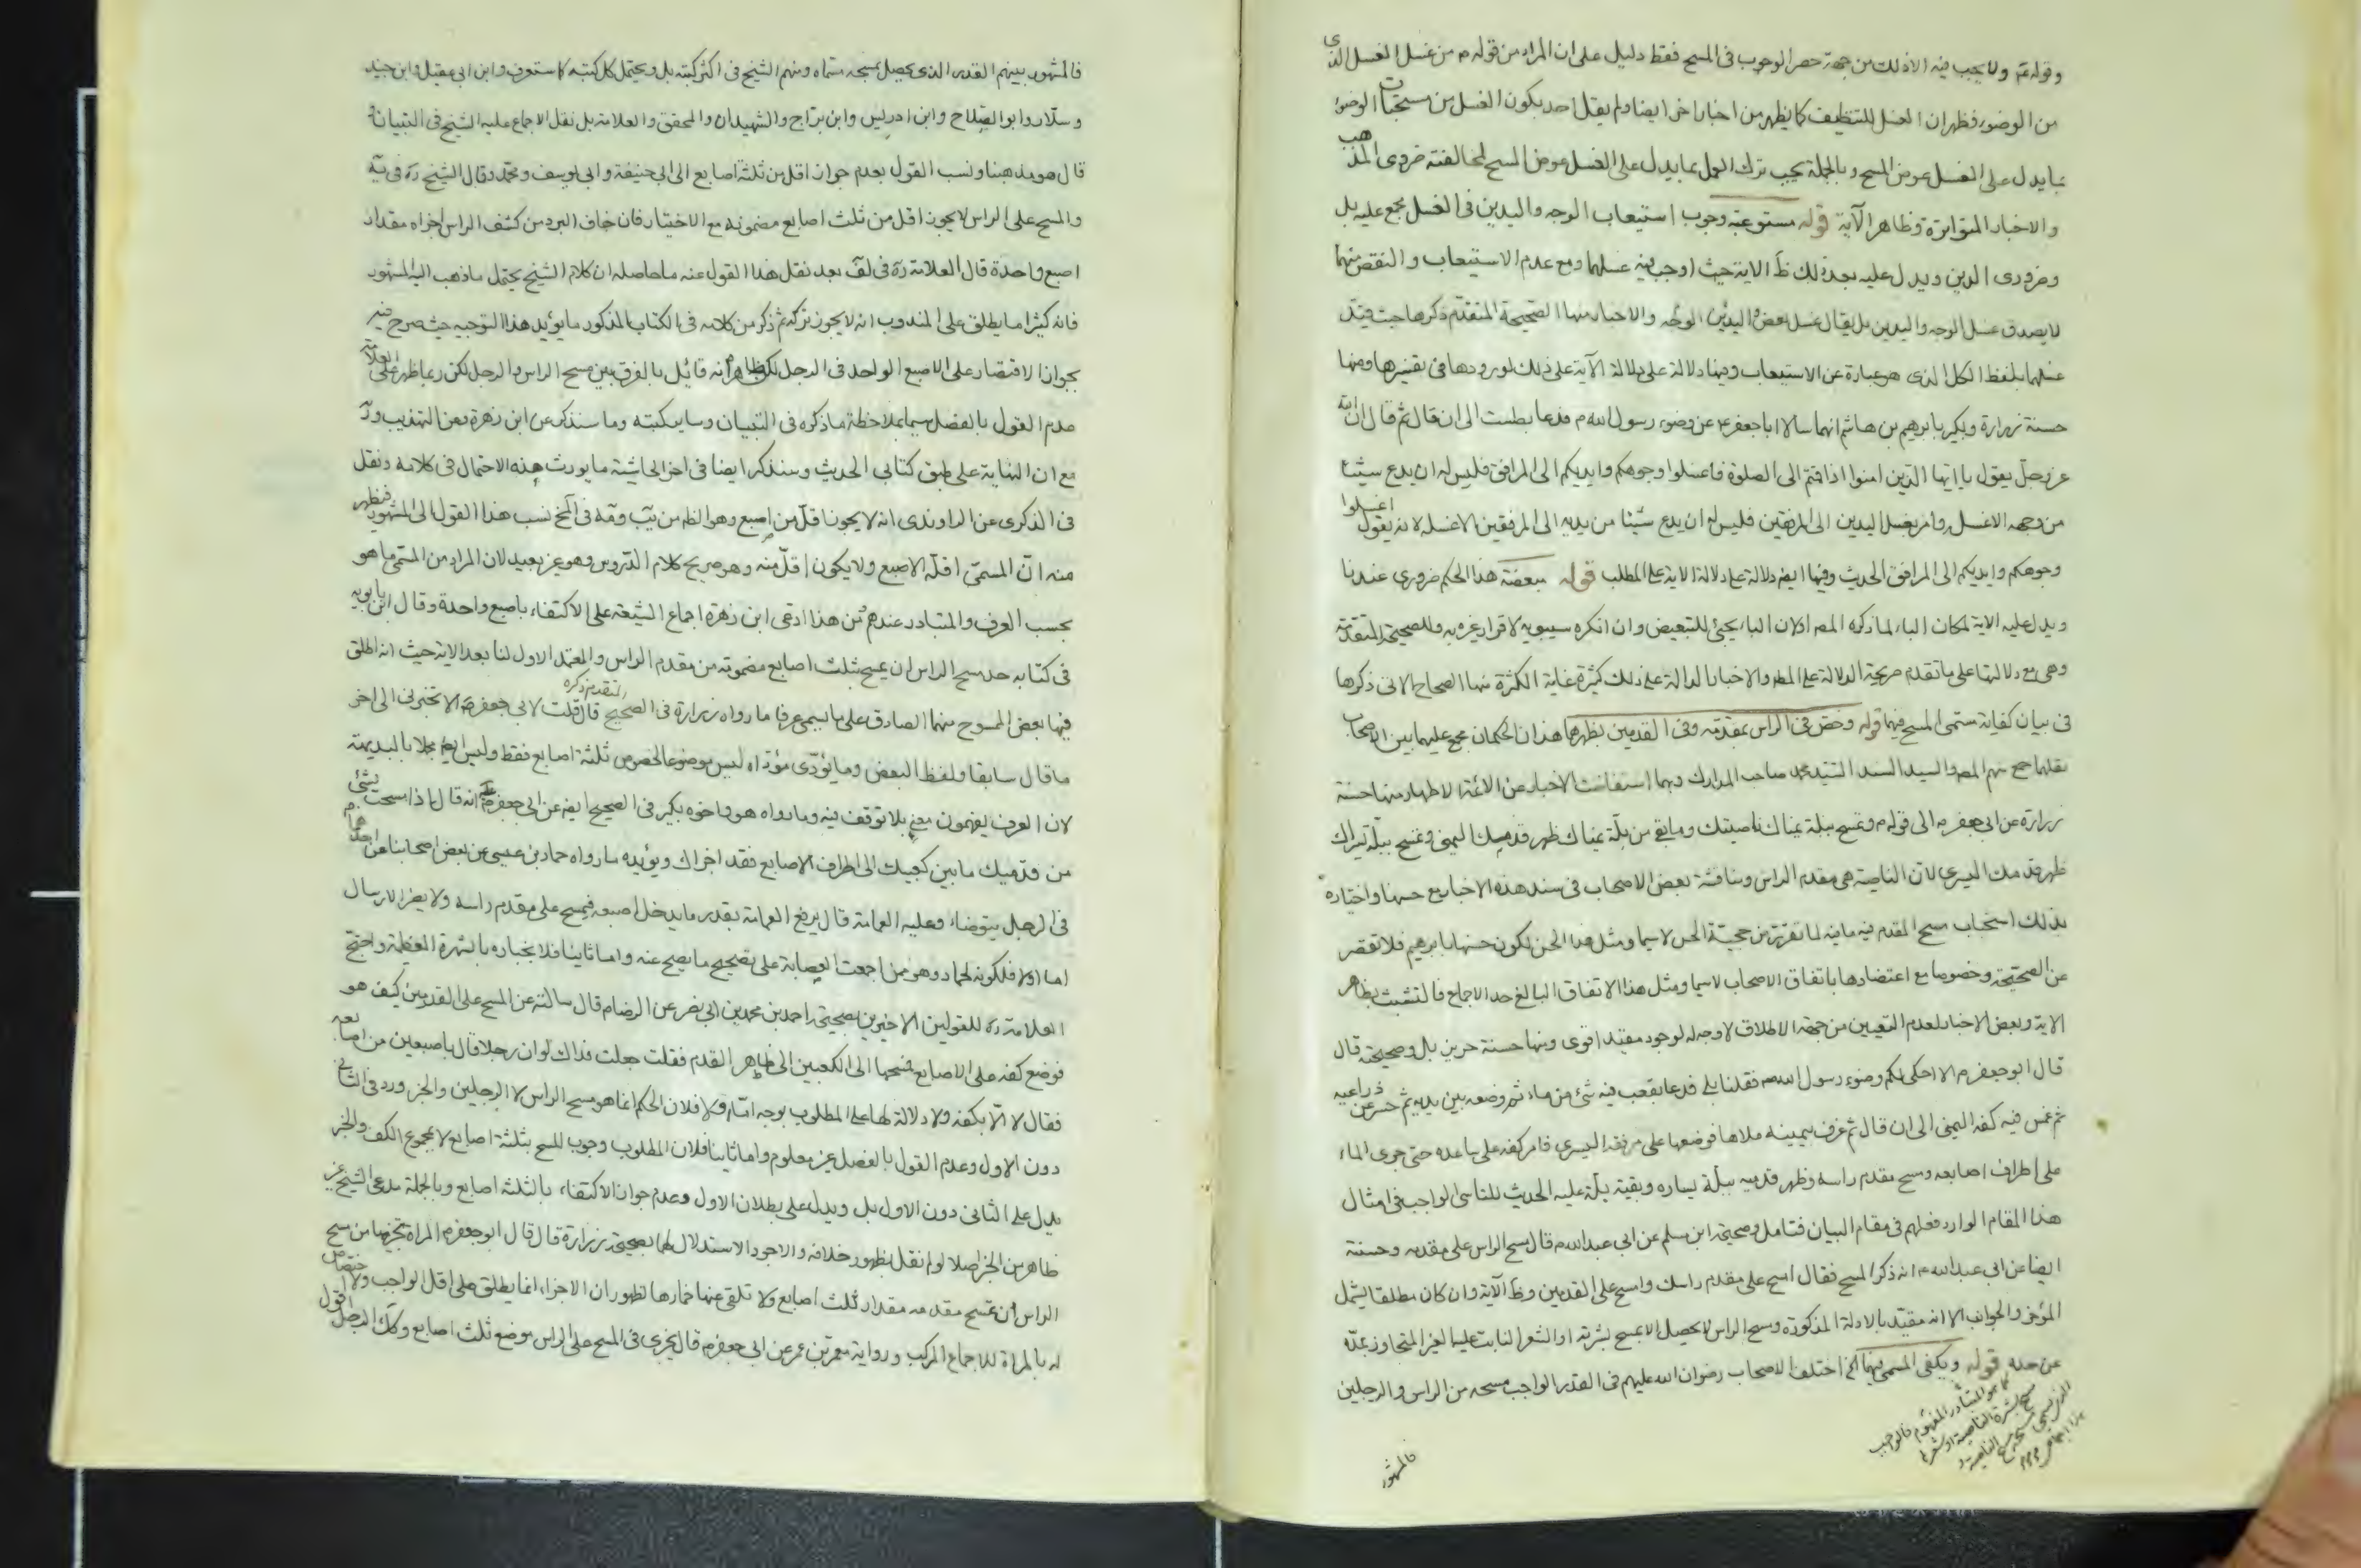 وقوله تم ولا يجب فيه الا ذلك من جهة حصر الوجوب في المسح فقط دليل على ان المراد من قوله م من غسل الغسل الذى
من الوضوء فظهر ان الغسل للتنظيف كما يظهر من اخبار اخر ايضا ولم يقل احد بكون الغسل من مستحبات الوضوء
بما يدل على الغسل عوض المسح وبالجملة يجب ترك العمل بما يدل على الغسل عوض المسح لمخالفته ضرورى المذهب
والاخبار المتواترة وظاهر الآية قوله مستوعبة وجوب استيعاب الوجه واليدين فى الغسل مجمع عليه بل
وضرورى الدين ويدل عليه بعد ذلك ظ الاية حيث اوجب فيه غسلهما ومع عدم الاستيعاب والنقص منهما
لا يصدق غسل الوجه واليدين بل يقال غسل بعض اليدين والوجه والاخبار منها الصحيحة المتقدم ذكرها حيث قيد
غسلهما بلفظ الكل الذى هو عبارة عن الاستيعاب وفيها دلالة على دلالة الآية على ذلك لورودها فى تفسيرها ومنها
حسنة زرارة وبكير بابرهيم بن هاشم انهما سالا ابا جعفر ع عن وضوء رسول الله م فدعا بطست الى ان قال ثم قال ان الله
عز وجل يقول يا ايها الذين امنوا اذا قمتم الى الصلوة فاغسلوا وجوهكم وايديكم الى المرافق فليس له ان يدع شيئا
من وجهه الا غسله وامر بغسل اليدين الى المرفقين فليس له ان يدع شيئا من يديه الى المرفقين الا غسله لانه يقول اغسلوا
وجوهكم وايديكم الى المرافق الحديث وفيها ايضا دلالة على دلالة الاية على المطلب قوله ببعضه هذا الحكم ضرورى عندنا
ويدل عليه الاية لمكان الباء لما ذكره المصر اولان الباء يجيئ للتبعيض وان انكره سيبويه لاقرار غيره به وللصحيحة المتقدمة
وهى مع دلالتها على ما تقدم صريحة الدلالة على المط والاخبار الدالة على ذلك كثيرة غاية الكثرة منها الصحاح الاتى ذكرها
فى بيان كفاية مسمى المسح فيهما قوله وخص فى الراس بمقدمه وفى القدمين بظهرهما هذان الحكمان مجمع عليهما بين الاصحاب
نقلهما جمع منهم المصر والسيد السند السيد محمد صاحب المدارك وبهما استفاضت الاخبار عن الائمة الاطهار منها حسنة
زرارة عن ابى جعفر م الى قوله م وتمسح ببلة يمناك ناصيتك وما بقى من بلة يمناك ظهر قدمك اليمنى وتمسح ببلة يسراك
ظهر قدمك اليسرى لان الناصية هى مقدم الراس ومناقشة بعض الاصحاب فى سند هذه الاخبار مع حسنها واختياره
بذلك استحباب مسح المقدم فيه ما فيه لما تقرر من حجية الحسن لا سيما ومثل هذا الحسن لكون حسنها بابرهيم فلا تقصر
عن الصحيحة وخصوصا مع اعتضادها باتفاق الاصحاب لا سيما ومثل هذا الاتفاق البالغ حد الاجماع فالتشبث بظاهر
الاية وبعض الاخبار لعدم التعيين من جهة الاطلاق لا وجه له لوجود مقيد اقوى ومنها حسنة حريز بل وصحيحته قال
قال ابو جعفر م الا احكى لكم وضوء رسول الله ص فقلنا بلى فدعا بقعب فيه شئ من ماء ثم وضعه بين يديه ثم حسر عن ذراعيه
ثم غمس فيه كفه اليمنى الى ان قال ثم غرف بيمينه ملاها فوضعها على مرفقه اليسرى فامر كفه على ساعده حتى جرى الماء
على اطراف اصابعه ومسح مقدم راسه وظهر قدميه ببلة يساره وبقية بلة عليه الحديث للتاسى الواجب فى امثال
هذا المقام الوارد فعلهم فى مقام البيان فتامل وصحيحة ابن مسلم عن ابى عبد الله م قال مسح الراس على مقدمه وحسنة
ايضا عن ابى عبد الله م انه ذكر المسح فقال امسح على مقدم راسك وامسح على القدمين وظ الآية وان كان مطلقا يشمل
المؤخر والجوانب الا انه مقيد بالادلة المذكورة ومسح الراس لا يحصل الا بمسح بشرته او الشعر النابت عليها الغير المتجاوز بمده
عن حده قوله ويكفى المسمى فيهما الخ اختلف الاصحاب رضوان الله عليهم فى القدر الواجب مسحه من الراس والرجلين
كما هو المتبادر المفهوم فالواجب
مسح بشرة الناصية او شعرها
الذى يسمى مسحه مسح الناصية
فالمشهور
فالمشهور بينهم القدر الذى يحصل بمسحه مسماه ومنهم الشيخ فى اكثر كتبه بل ويحتمل كل كتبه كما ستعرف وابن ابى عقيل وابن جنيد
وسلار وابو الصلاح وابن ادريس وابن براج والشهيدان والمحقق والعلامة بل نقل الاجماع عليه الشيخ فى التبيان
قال هو مذهبنا ونسب القول بعدم جواز اقل من ثلثة اصابع الى ابى حنيفة وابى يوسف ومحمد وقال الشيخ ره فى ية
والمسح على الراس لا يجوز اقل من ثلث اصابع مضمومة مع الاختيار فان خاف البرد من كشف الراس اجزاه مقدار
اصبع واحدة قال العلامة ره فى لف بعد نقل هذا القول عنه ما حاصله ان كلام الشيخ يحتمل ما ذهب اليه المشهور
فانه كثيرا ما يطلق على المندوب انه لا يجوز تركه ثم ذكر من كلامه فى الكتاب المذكور ما يؤيد هذا التوجيه حيث صرح فيه
بجواز الاقتصار على الاصبع الواحد فى الرجل لكن ظاهر انه قائل بالفرق بين مسح الراس والرجل لكن ربما ظهر على العلامة
عدم القول بالفصل سيما بملاحظة ما ذكره فى التبيان وساير كتبه وما سنذكر عن ابن زهرة وعن التهذيب
مع ان النهاية على طبق كتابى الحديث وسنذكر ايضا فى اخر الحاشية ما يورث هذه الاحتمال فى كلامه ونقل
فى الذكرى عن الراوندى انه لا يجوز اقل من اصبع وهو الظاهر من يب وقه فى المخ نسب هذا القول الى المشهور فيظهر
منه ان المسمى اقله الاصبع ولا يكون اقل منه وهو صريح كلام الدروس وهو غير بعيد لان المراد من المسمى ما هو
بحسب العرف والمتبادر عندهم من هذا ادعى ابن زهرة اجماع الشيعة على الاكتفاء باصبع واحدة وقال ابن بابويه
فى كتابه حد مسح الراس ان يمسح بثلث اصابع مضمومة من مقدم الراس والمعتمد الاول لنا بعد الاية حيث انه اطلق
فيها بعض الممسوح منهما الصادق على ما يسمى عرفا ما رواه زرارة فى الصحيح المتقدم ذكره قال قلت لابى جعفر ع الا تخبرنى الى اخر
ما قال سابقا ولفظ البعض وما يؤدى مؤداه ليس موضوعا لخصوص ثلثة اصابع فقط وليس ايضا مجملا بالبديهة
لان العرف يفهمون معنى بلا توقف فيه وما رواه هو واخوه بكير فى الصحيح ايضا عن ابى جعفر ع انه قال اذا مسحت بشئ
من قدميك ما بين كعبيك الى اطراف الاصابع فقد اجزاك ويؤيده ما رواه حماد بن عيسى عن بعض اصحابنا عن احدهما م
فى الرجل يتوضاء وعليه العمامة قال يرفع العمامة بقدر ما يدخل اصبعه فيمسح على مقدم راسه ولا يضر الارسال
اما اولا فلكونه لحماد وهو ممن اجمعت العصابة على تصحيح ما يصح عنه واما ثانيا فلانجباره بالشهرة العظيمة واحتج
العلامة ره للقولين الاخيرين بصحيحة احمد بن محمد بن ابى نصر عن الرضا م قال سالته عن المسح على القدمين كيف هو
فوضع كفه على الاصابع فمسحها الى الكعبين الى ظاهر القدم فقلت جعلت فداك لو ان رجلا قال باصبعين من اصابعه
فقال لا الا بكفه ولا دلالة لها على المطلوب بوجه اما اولا فلان الحكم انما هو مسح الراس لا الرجلين والخبر ورد فى الثانى
دون الاول وعدم القول بالفصل غير معلوم واما ثانيا فلان المطلوب وجوب المسح بثلثة اصابع لا بمجموع الكف والخبر
يدل على الثانى دون الاول بل ويدل على بطلان الاول وعدم جواز الاكتفاء بالثلثة اصابع وبالجملة مدعى الشيخ غير
ظاهر من الخبر اصلا لو لم نقل بظهور خلافه والاجود الاستدلال لهما بصحيحة زرارة قال قال ابو جعفر م المراة يجزيها من مسح
الراس ان تمسح مقدمه مقدار ثلث اصابع ولا تلقى عنها خمارها لظهور ان الاجزاء انما يطلق على اقل الواجب ولا اختصاص
له بالمراة للاجماع المركب ورواية معمر بن عمر عن ابى جعفر م قال يجزى فى المسح على الراس موضع ثلث اصابع وكك الرجل اقول